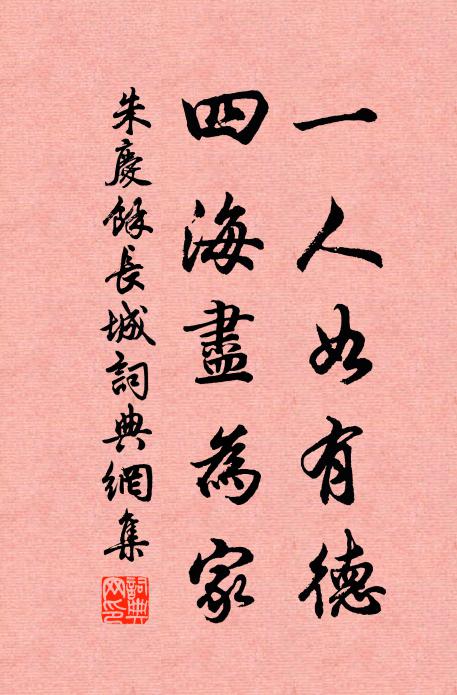 一人如有德
四海盡為家
朱慶餘長城詞典網集
詞典網印